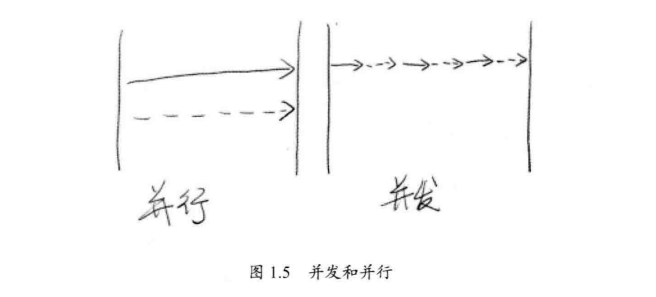 并行
并发
图 1.5 并发和并行